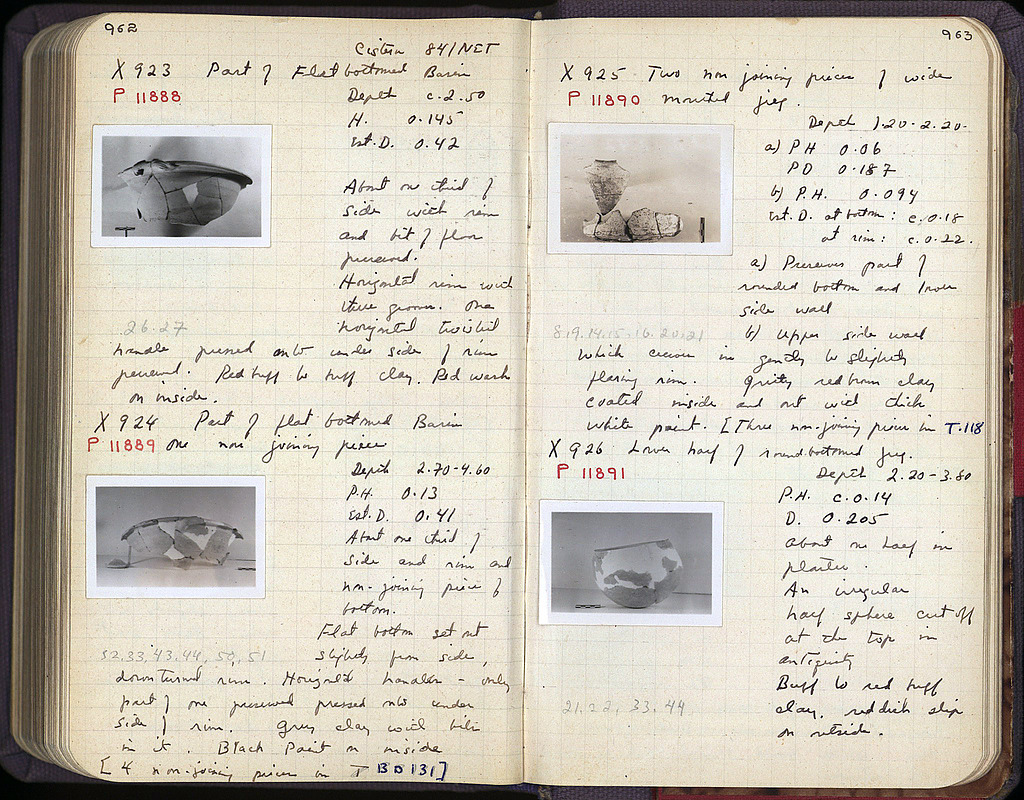 962
Cistern 84/NET
X 923 Part of Flat bottomed Basin
P 11888
Depth c. 2.50
H. 0.145
Est. D. 0.42
About one third of
side with rim
and bit of floor
preserved.
Horizontal rim with
three grooves. One
26.27
horizontal twisted
handle pressed onto under side of rim
preserved. Red buff to buff clay. Red wash
on inside.
X 924 Part of flat bottomed Basin
P 11889 one non joining piece
Depth 2.70-4.60
P.H. 0.13
Est. D. 0.41
About one third of
side and rim and
non-joining piece of
bottom.
Flat bottom set out
32.33, 43.44, 50, 51 slightly from side,
downturned rim. Horizontal handles - only
part of one preserved pressed onto under
side of rim. Grey clay with bits
in it. Black Paint on inside
[4 non-joining pieces in T BD 131]
963
X 925 Two non joining pieces of wide
P 11890 mouthed jug.
Depth 1.20-2.20-
a) PH 0.06
PD 0.187
b) P.H. 0.094
Est. D. at bottom: c. 0.18
at rim: c. 0.22.
a) Preserves part of
rounded bottom and lower
side wall
8,9.14.15.16.20,21 b) Upper side wall
which curves in gently to slightly
flaring rim. Gritty red brown clay
coated inside and out with thick
white paint. [Three non-joining pieces in T.118
X 926 Lower half of round bottomed jug.
P 11891
Depth 2.20-3.80
P.H. c. 0.14
D. 0.205
About one half in
plaster.
An irregular
half sphere cut off
at the top in
antiquity
Buff to red buff
21.22, 33.44 clay, reddish slip
on outside.